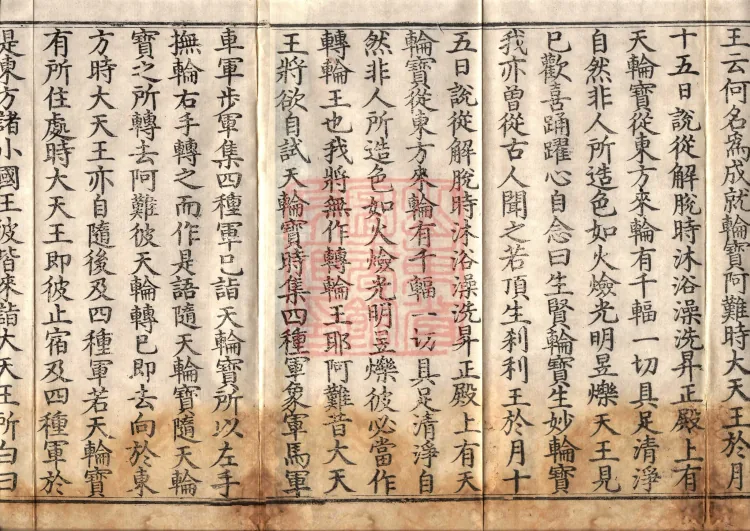 王云何名為成就輪寶阿難時大天王於月
十五日說從解脫時沐浴澡洗昇正殿上有
天輪寶從東方來輪有千輻一切具足清淨
自然非人所造色如火㷿光明昱爍天王見
已歡喜踊躍心自念曰生賢輪寶生妙輪寶
我亦曾從古人聞之若頂生刹利王於月十
五日說從解脫時沐浴澡洗昇正殿上有天
輪寶從東方來輪有千輻一切具足清淨自
然非人所造色如火㷿光明昱爍彼必當作
轉輪王也我將無作轉輪王耶阿難昔大天
王將欲自試天輪寶時集四種軍象軍馬軍
車軍步軍集四種軍已詣天輪寶所以左手
撫輪右手轉之而作是語隨天輪寶隨天輪
寶之所轉去阿難彼天輪轉已即去向於東
方時大天王亦自隨後及四種軍若天輪寶
有所住處時大天王即彼止宿及四種軍於
是東方諸小國王彼皆來詣大天王所白曰